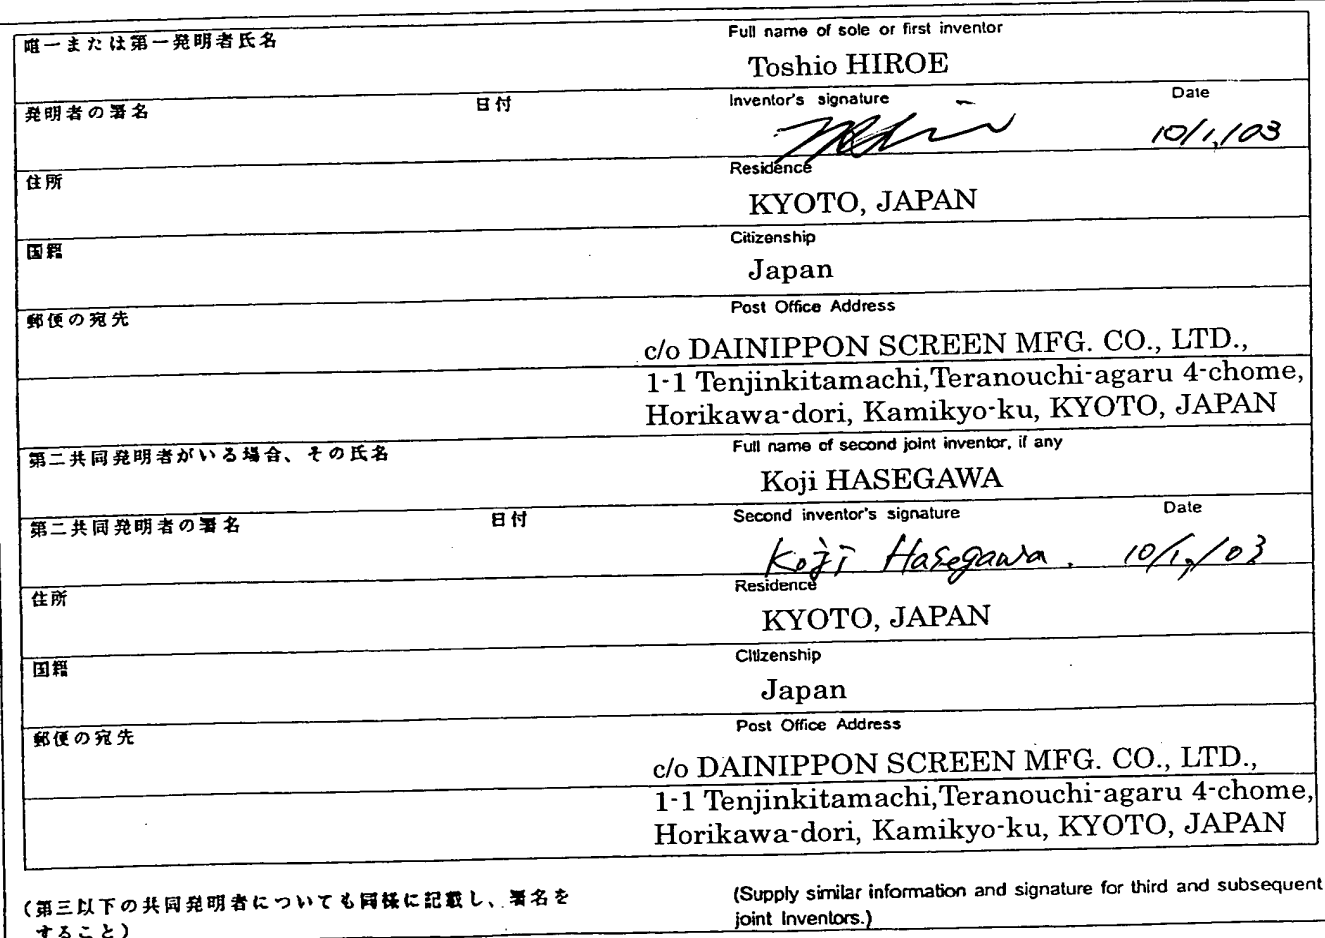 唯一または第一発明者氏名 Full name of sole or first inventor
Toshio HIROE
発明者の署名 日付 Inventor's signature Date
10/1,/03
住所 Residence
KYOTO, JAPAN
国籍 Citizenship
Japan
郵便の宛先 Post Office Address
c/o DAINIPPON SCREEN MFG. CO., LTD.,
1-1 Tenjinkitamachi,Teranouchi-agaru 4-chome,
Horikawa-dori, Kamikyo-ku, KYOTO, JAPAN
第二共同発明者がいる場合、その氏名 Full name of second joint inventor, if any
Koji HASEGAWA
第二共同発明者の署名 日付 Second inventor's signature Date
Koji Hasegawa. 10/1,/03
住所 Residence
KYOTO, JAPAN
国籍 Citizenship
Japan
郵便の宛先 Post Office Address
c/o DAINIPPON SCREEN MFG. CO., LTD.,
1-1 Tenjinkitamachi,Teranouchi-agaru 4-chome,
Horikawa-dori, Kamikyo-ku, KYOTO, JAPAN
(第三以下の共同発明者についても同様に記載し、署名を
すること)
(Supply similar information and signature for third and subsequent
joint Inventors.)